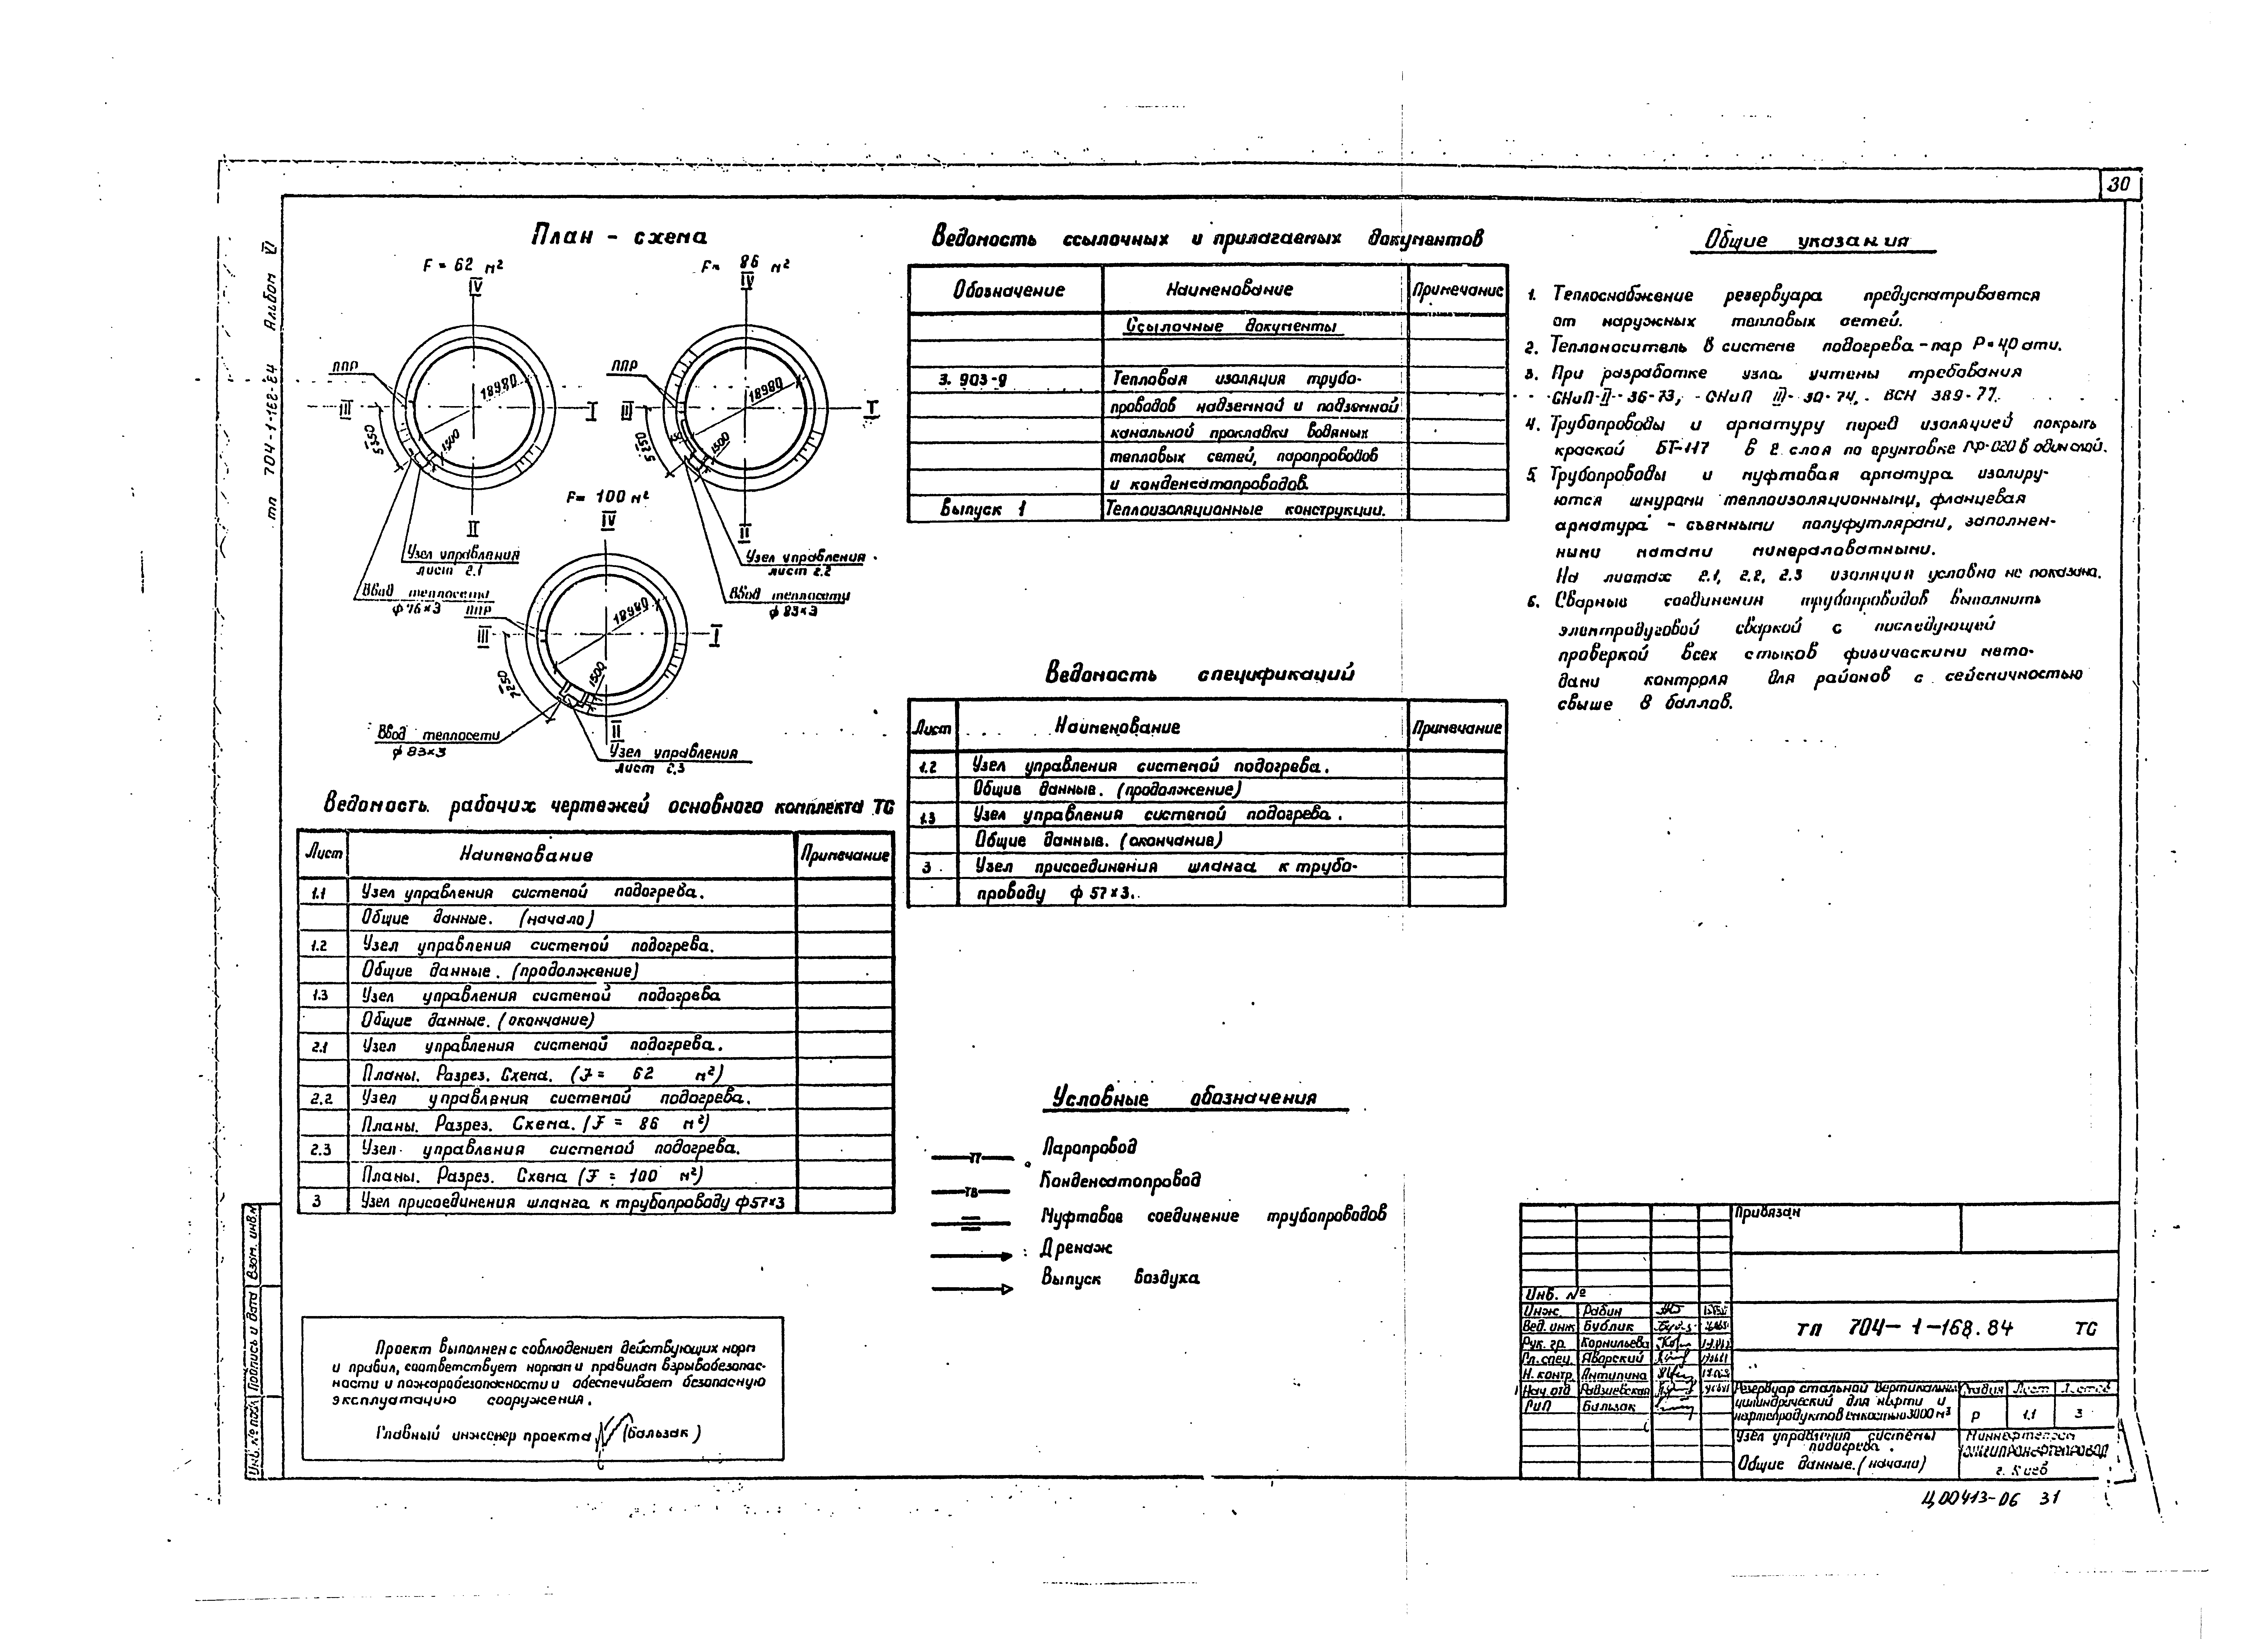 30
тп 704-1-168.84 Альбом VI
План - схема
F = 62 м²
IV
ППР
18980
III
I
5350
1500
II
Узел управления
лист 2.1
Ввод теплосети
ф 76×3
F= 86 м²
IV
ППР
18980
III
I
5250
1500
II
Узел управления
лист 2.2
Ввод теплосети
ф 83×3
F= 100 м²
IV
ППР
18980
III
I
7250
1500
II
Ввод теплосети
ф 83×3
Узел управления
лист 2.3
Ведомость рабочих чертежей основного комплекта ТС
Лист Наименование Примечание
1.1 Узел управления системой подогрева.
Общие данные. (начало)
1.2 Узел управления системой подогрева.
Общие данные. (продолжение)
1.3 Узел управления системой подогрева
Общие данные. (окончание)
2.1 Узел управления системой подогрева.
Планы. Разрез. Схема. (F = 62 м²)
2.2 Узел управления системой подогрева.
Планы. Разрез. Схема. (F = 86 м²)
2.3 Узел управления системой подогрева.
Планы. Разрез. Схема (F = 100 м²)
3 Узел присоединения шланга к трубопроводу ф57×3
Проект выполнен с соблюдением действующих норм
и правил, соответствует нормам и правилам взрывобезопас-
ности и пожаробезопасности и обеспечивает безопасную
эксплуатацию сооружения.
Главный инженер проекта (Бальзак)
Ведомость ссылочных и прилагаемых документов
Обозначение Наименование Примечание
Ссылочные документы
3. 903-9 Тепловая изоляция трубо-
проводов надземной и подземной
канальной прокладки водяных
тепловых сетей, паропроводов
и конденсатопроводов.
Выпуск 1 Теплоизоляционные конструкции.
Ведомость спецификаций
Лист Наименование Примечание
1.2 Узел управления системой подогрева.
Общие данные. (продолжение)
1.3 Узел управления системой подогрева.
Общие данные. (окончание)
3 Узел присоединения шланга к трубо-
проводу ф 57×3.
Условные обозначения
Паропровод
Конденсатопровод
Муфтовое соединение трубопроводов
Дренаж
Выпуск воздуха
Общие указания
1. Теплоснабжение резервуара предусматривается
от наружных тепловых сетей.
2. Теплоноситель в системе подогрева - пар Р=4,0 ати.
3. При разработке узла учтены требования
СНиП-II-36-73, СНиП III-30-74, ВСН 389-77.
4. Трубопроводы и арматуру перед изоляцией покрыть
краской БТ-177 в 2 слоя по грунтовке ГФ-020 в один слой.
5. Трубопроводы и муфтовая арматура изолиру-
ются шнурами теплоизоляционными, фланцевая
арматура - съемными полуфутлярами, заполнен-
ными матами минераловатными.
На листах 2.1, 2.2, 2.3 изоляция условно не показана.
6. Сварные соединения трубопроводов выполнить
электродуговой сваркой с последующей
проверкой всех стыков физическими мето-
дами контроля для районов с сейсмичностью
свыше 8 баллов.
Привязан
Инв. №
Инж. Рабин
Вед. инж Бублик
Рук. гр. Корнильева
Гл. спец. Яворский
Н. контр. Антипина
Нач. отд Радзиевская
ГИП Бальзак
тп 704-1-168.84 ТС
Резервуар стальной вертикальный
цилиндрический для нефти и
нефтепродуктов емкостью 3000 м³
Стадия Лист Листов
Р 1.1 3
Узел управления системы
подогрева.
Общие данные. (начало)
Миннефтепром
ЮЖГИПРОНЕФТЕПРОВОД
г. Киев
Инв. № подл. Подпись и дата Взам. инв. №
Ц00413-06 31